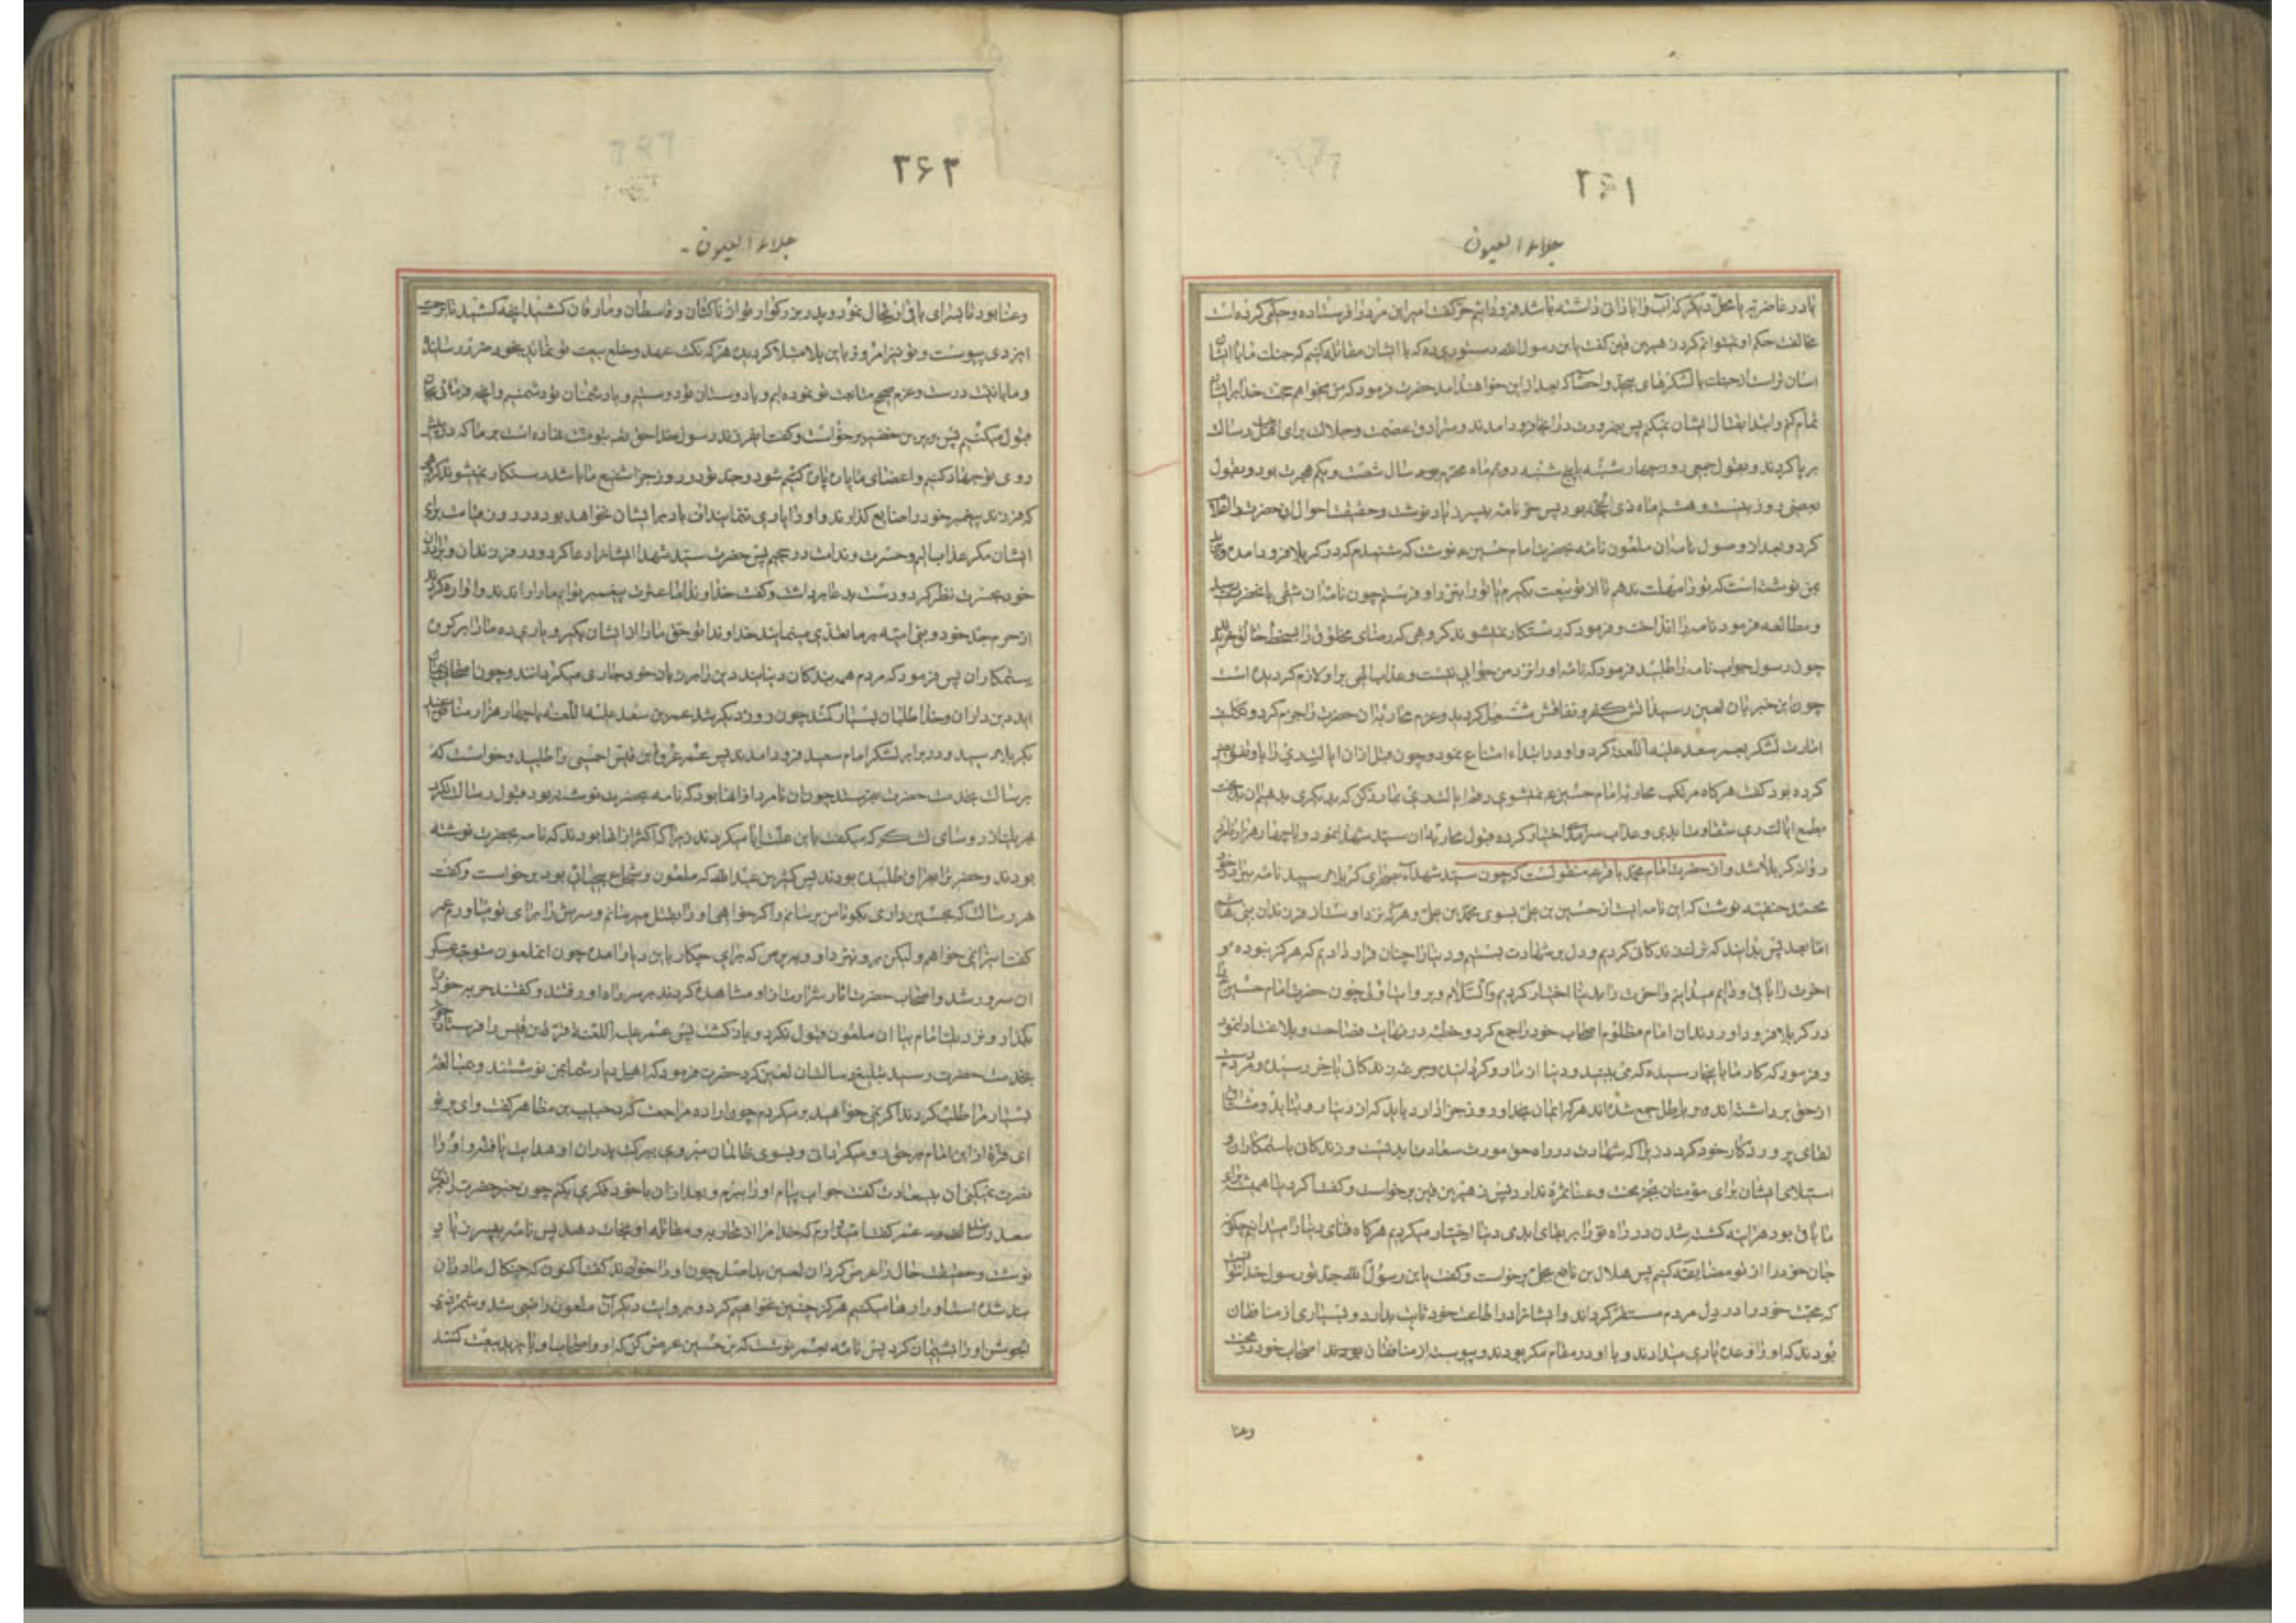 ۲۶۱
جلاء العیون
یا در غاضریه یا محل دیگر که آب و آبادانی داشته باشد فرود آئیم حر گفت امیر این مرد را فرستاده و حکمی کرده است
مخالفت حکم او نمیتوانم کرد زهیر بن قین گفت یابن رسول الله دستوری ده که با ایشان مقاتله کنیم که جنک ما با ایشان
آسان تر است از جنک با لشکرهای بیحد و احصا که بعد از این خواهند آمد حضرت فرمود که من میخواهم حجت خدا بر ایشان
تمام کنم و ابتدا بقتال ایشان نمیکنم پس بضرورت در آنجا فرود آمدند و سرادق عصمت و جلالت برای اهلبیت رسالت
بر پا کردند و بقول جمعی روز چهارشنبه یا پنج شنبه دویم ماه محرم بود سال شصت و یکم هجرت بود و بقول
بعضی روز بیست و هشتم ماه ذی الحجه بود پس حر نامه بپسر زیاد نوشت و حقیقت احوال آن حضرت
کرد و بعد از وصول نامه آن ملعون نامه بحضرت امام حسین ع نوشت که شنیدم که در کربلا فرود آمده و یزید
بمن نوشته است که تو را مهلت ندهم تا از تو بیعت بگیرم یا تو را بنزد او فرستم چون نامه آن شقی بآنحضرت رسید
و مطالعه فرمود نامه را انداخت و فرمود که رستکار نمیشوند کروهی که رضای مخلوق را بسخط خالق خریدند
چون رسول جواب نامه را طلبید فرمود که نامه او را نزد من جوابی نیست و عذاب الهی بر او لازم کردیده است
چون این خبر بآن لعین رسید آتش کفر و نفاقش مشتعل کردید و عزم محاربه آن حضرت را جزم کرد و تکلیف
امارت لشکر بعمر سعد علیه اللعنه کرد و او در ابتداء امتناع نمود و چون قبل از آن ایالت ری را باو تفویض
کرده بود گفت هرگاه مرتکب محاربه امام حسین ع نمیشوی ایالت ری بما رد کن که بدیگری بدهیم آن بدبخت
بطمع ایالت ری شقاوت ابدی و عذاب سرمد اختیار کرده قبول محاربه آن سید شهدا نمود و با چهار هزار نامرد
روانه کربلا شد و از حضرت امام محمد باقر ع منقولست که چون سید شهدا بصحرای کربلا رسید نامه ببرادر خود
محمد حنفیه نوشت که این نامه ایست از حسین بن علی بسوی محمد بن علی و هر که نزد اوست از فرزندان بنی هاشم
اما بعد پس بدانید که ترک زندکانی کردیم و دل بر شهادت بستیم و دنیا را چنان قرار دادیم که هرگز نبوده و
آخرت را باقی و دائم میدانیم و آخرت را بر دنیا اختیار کردیم والسلام و بروایت اول چون حضرت امام حسین را
در کربلا فرود آوردند آن امام مظلوم اصحاب خود را جمع کرد و خطبه در نهایت فصاحت و بلاغت ادا نمود
و فرمود که کار ما باینجا رسیده که می بینید و دنیا از ما رو گردانیده و جرعه زندکانی بآخر رسیده و مردم دست
از حق برداشته اند و بر باطل جمع شده اند هر که ایمان بخدا و روز جزا دارد باید که از دنیا رو بتابد و مشتاق
لقای پروردکار خود کردد زیرا که شهادت در راه حق مورث سعادت ابدیست و زندکانی با ستمکاران و
استیلای ایشان برای مؤمنان بجز محنت و عنا ثمره ندارد پس زهیر بن قین برخواست و گفت اگر دنیا همیشه برای
ما باقی بود هر آینه کشته شدن در راه تو را بر بقای ابدی دنیا اختیار میکردیم هرگاه فنای دنیا را میدانیم چگونه
جان خود را از تو مضایقه کنیم پس هلال بن نافع بجلی برخواست و گفت یابن رسول الله جد تو رسول خدا نتوانست
که محبت خود را در دل مردم مستقر گرداند و ایشانرا در اطاعت خود ثابت بدارد و بسیاری از منافقان
بودند که او را وعده یاری میدادند و با او در مقام مکر بودند و پیوسته از منافقان اصحاب خود در محنت
وعنا
۲۶۲
جلاء العیون
وعنا بود تا بسرای باقی ارتحال نمود و پدر بزرکوار تو از ناکثان و قاسطان و مارقان کشید آنچه کشید تا برحمت
ایزدی پیوست و تو نیز امروز باین بلا مبتلا کردیده هر که نکث عهد و خلع بیعت تو نماید بخود ضرر رساند
و ما با نیت درست و عزم صحیح متابعت تو نموده ایم و با دوستان تو دوستیم و با دشمنان تو دشمنیم و آنچه فرمائی بجان
قبول میکنیم پس بریر بن خضیر برخواست و گفت ای فرزند رسول خدا حق تعالی بتو منت نهاده است بر ما که در پیش
روی تو جهاد کنیم و اعضای ما پاره پاره کشته شود و جد تو در روز جزا شفیع ما باشد رستکار نمیشوند گروهی
که فرزند پیغمبر خود را ضایع گذارند و او را یاری ننمایند اف باد بر ایشان نخواهد بود در روز قیامت برای
ایشان مگر عذاب الیم و حسرت و ندامت در جحیم پس حضرت سید شهدا ایشانرا دعا کرد و در فرزندان و برادران
خود بحسرت نظر کرد و دست بدعا برداشت و گفت خداوندا ما عترت پیغمبر توایم ما را راندند و آواره کردند
از حرم جد خود و بنی امیه بر ما تعدی مینمایند خداوندا تو حق ما را از ایشان بگیر و یاری ده ما را بر گروه
ستمکاران پس فرمود که مردم همه بندکان دنیایند دین را بر زبان خود جاری میگردانند و چون امتحان بمیان
آید دین داران و خدا طلبان کمند چون روز دیگر شد عمر بن سعد علیه اللعنه با چهار هزار منافق
بکربلا رسید و در برابر لشکر امام سعید فرود آمدند پس عمر عروة بن قیس احمسی را طلبید و خواست که
برسالت بخدمت حضرت بفرستد چون آن نامرد از آنها بود که نامه بحضرت نوشته بود قبول رسالت نکرد
بهر یک از روسای لشکر که میگفت باین علت ابا میکردند زیرا که اکثر از آنها بودند که نامه بحضرت نوشته
بودند و حضرت را بعراق طلبیده بودند پس کثیر بن عبد الله که ملعون و شجاع بیباک بود برخواست و گفت
هر رسالت که بحسین داری بگو تا من برسانم و اگر خواهی او را بقتل میرسانم و سرش را برای تو میآورم عمر
گفت این را نمی خواهم ولیکن برو نزد او و بپرس که برای چه کار باین دیار آمده چون آنملعون متوجه عسکر
آن سرور شد و اصحاب حضرت آثار شرارت از او مشاهده کردند بر سر راه او رفتند و گفتند حربه خود را
بگذار و نزدیک امام بیا آن ملعون قبول نکرد و باز گشت پس عمر علیه اللعنة قرة بن قیس را فرستاد چون
بخدمت حضرت رسید تبلیغ رسالت آن لعین کرد حضرت فرمود که اهل دیار شما بمن نوشتند و مبالغه
بسیار مرا طلب کردند اگر نمی خواهید برمیگردم چون اراده مراجعت کرد حبیب بن مظاهر گفت وای بر تو
ای قره از این امام بر حق رو میگردانی و بسوی ظالمان میروی ببرکت پدران او هدایت یافته و او را
نصرت نمیکنی آن بیسعادت گفت جواب پیام او را ببرم و بعد از آن با خود فکری بکنم چون خبر حضرت
سعد رسانید عمر گفت امیدوارم که خدا مرا از محاربه و مقاتله او نجات دهد پس نامه بپسر زیاد
نوشت و حقیقت حال را عرض کرد آن لعین چون او را خواند گفت اکنون که چنکال ما در آن
بند شده است او را رها میکنیم هرگز چنین نخواهم کرد و بروایت دیگر آن ملعون راضی شد و شمر ذی
الجوشن او را پشیمان کرد پس نامه بعمر نوشت که بر حسین عرض کن که او و اصحاب او با یزید بیعت کنند